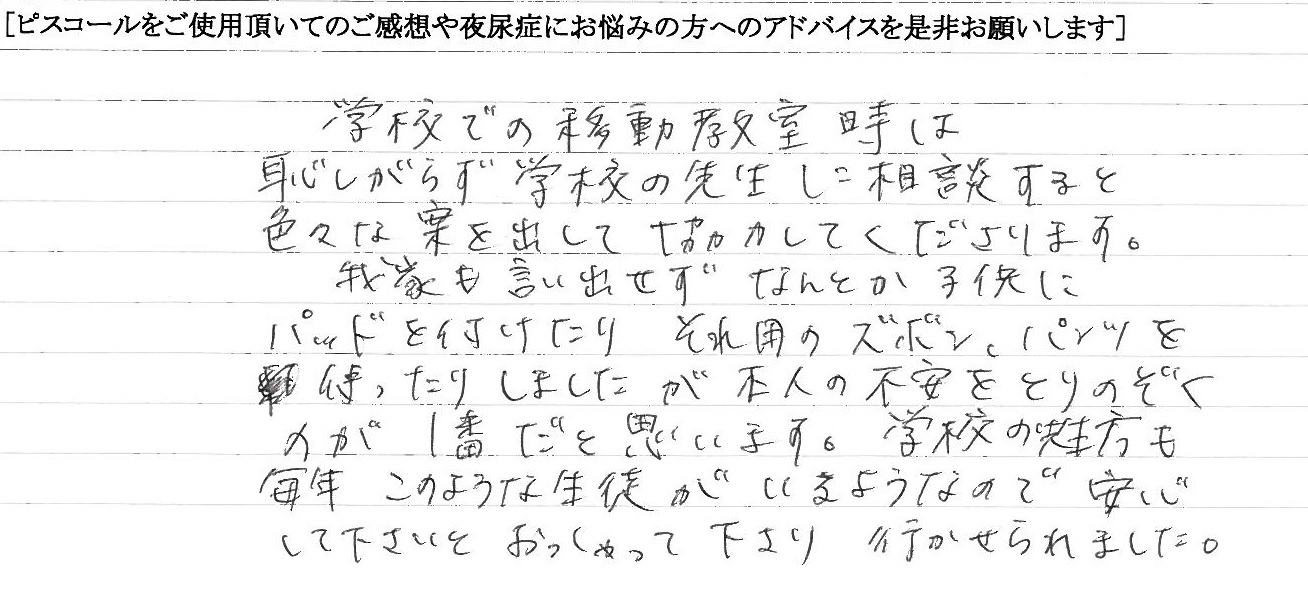 [ピスコールをご使用頂いてのご感想や夜尿症にお悩みの方へのアドバイスを是非お願いします]
学校での移動教室時は
恥しがらず学校の先生に相談すると
色々な案を出して協力してくださります。
我家も言い出せずなんとか子供に
パッドを付けたり それ用のズボン、パンツを
使ったりしましたが本人の不安をとりのぞく
のが1番だと思います。学校の先生方も
毎年 このような生徒がいるようなので安心
して下さいと おっしゃって下さり 行かせられました。